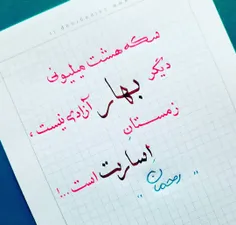 سکه هشت میلیونی
دیگر بهار آزادی نیست،
زمستانِ
اسارت است...!
"رحمان"